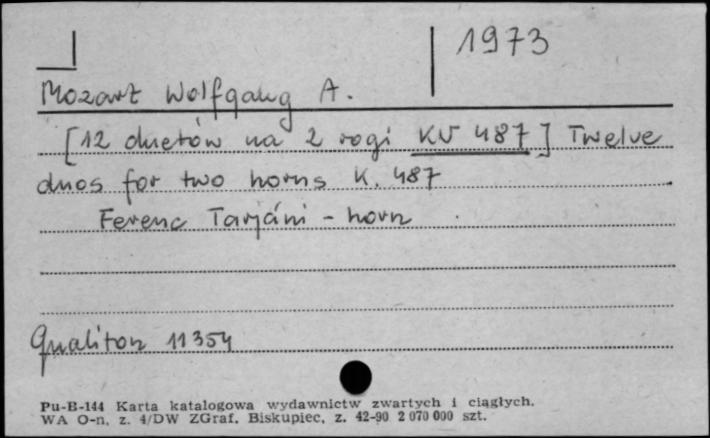 1973
Mozart Wolfgang A.
[12 duetów na 2 rogi KV 487] Twelve
duos for two horns K. 487
Ferenc Tarjáni - horn
Qualiton 11354
Pu-B-144 Karta katalogowa wydawnictw zwartych i ciągłych.
WA O-n, z. 4/DW ZGraf. Biskupiec, z. 42-90 2 070 000 szt.